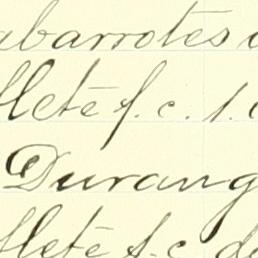 abarrotes
flete f. c. 1.
Durang
flete f. c. de